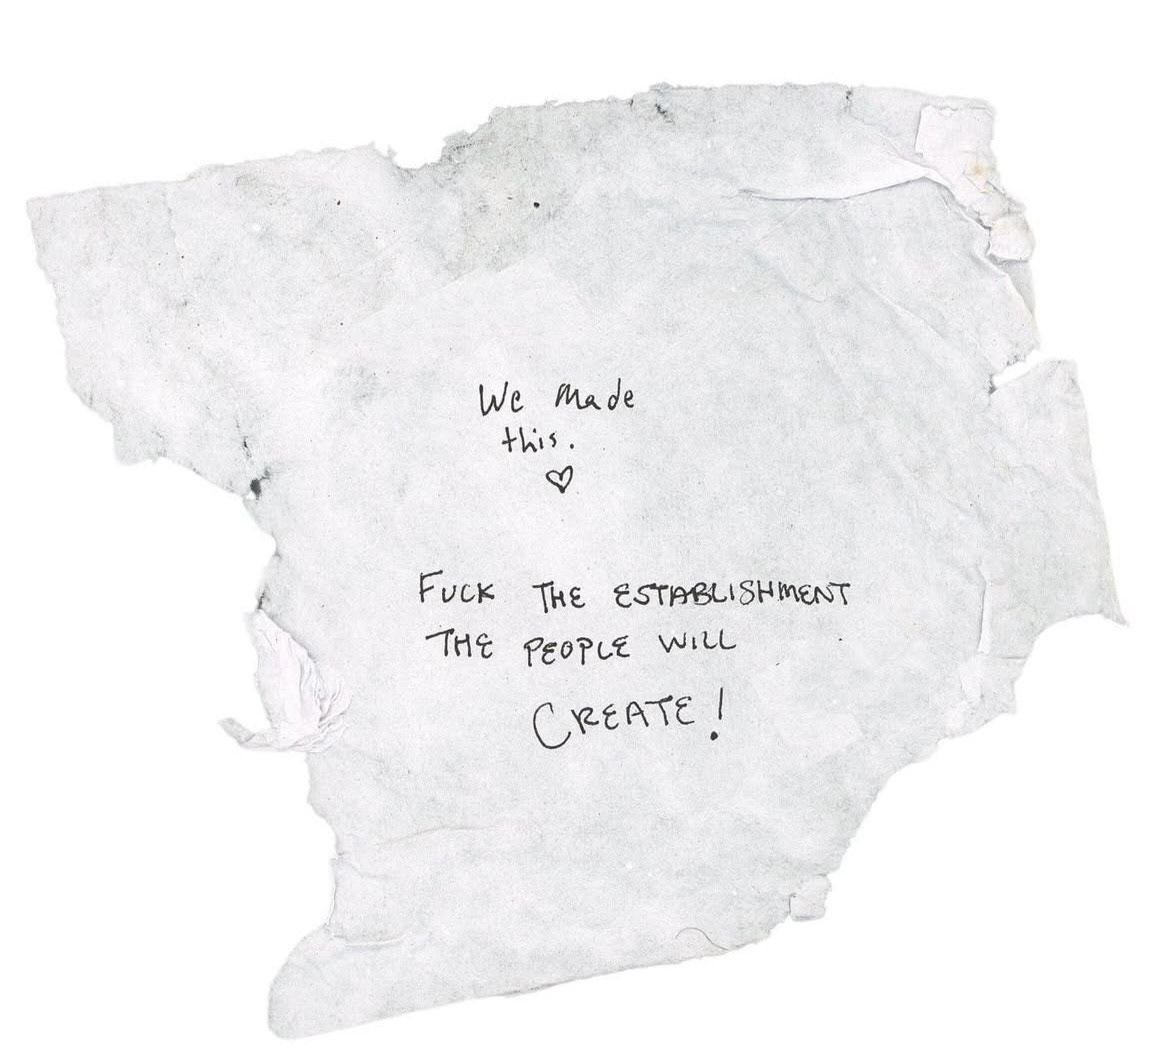 We made
this.
♡
FUCK THE ESTABLISHMENT
THE PEOPLE WILL
CREATE!